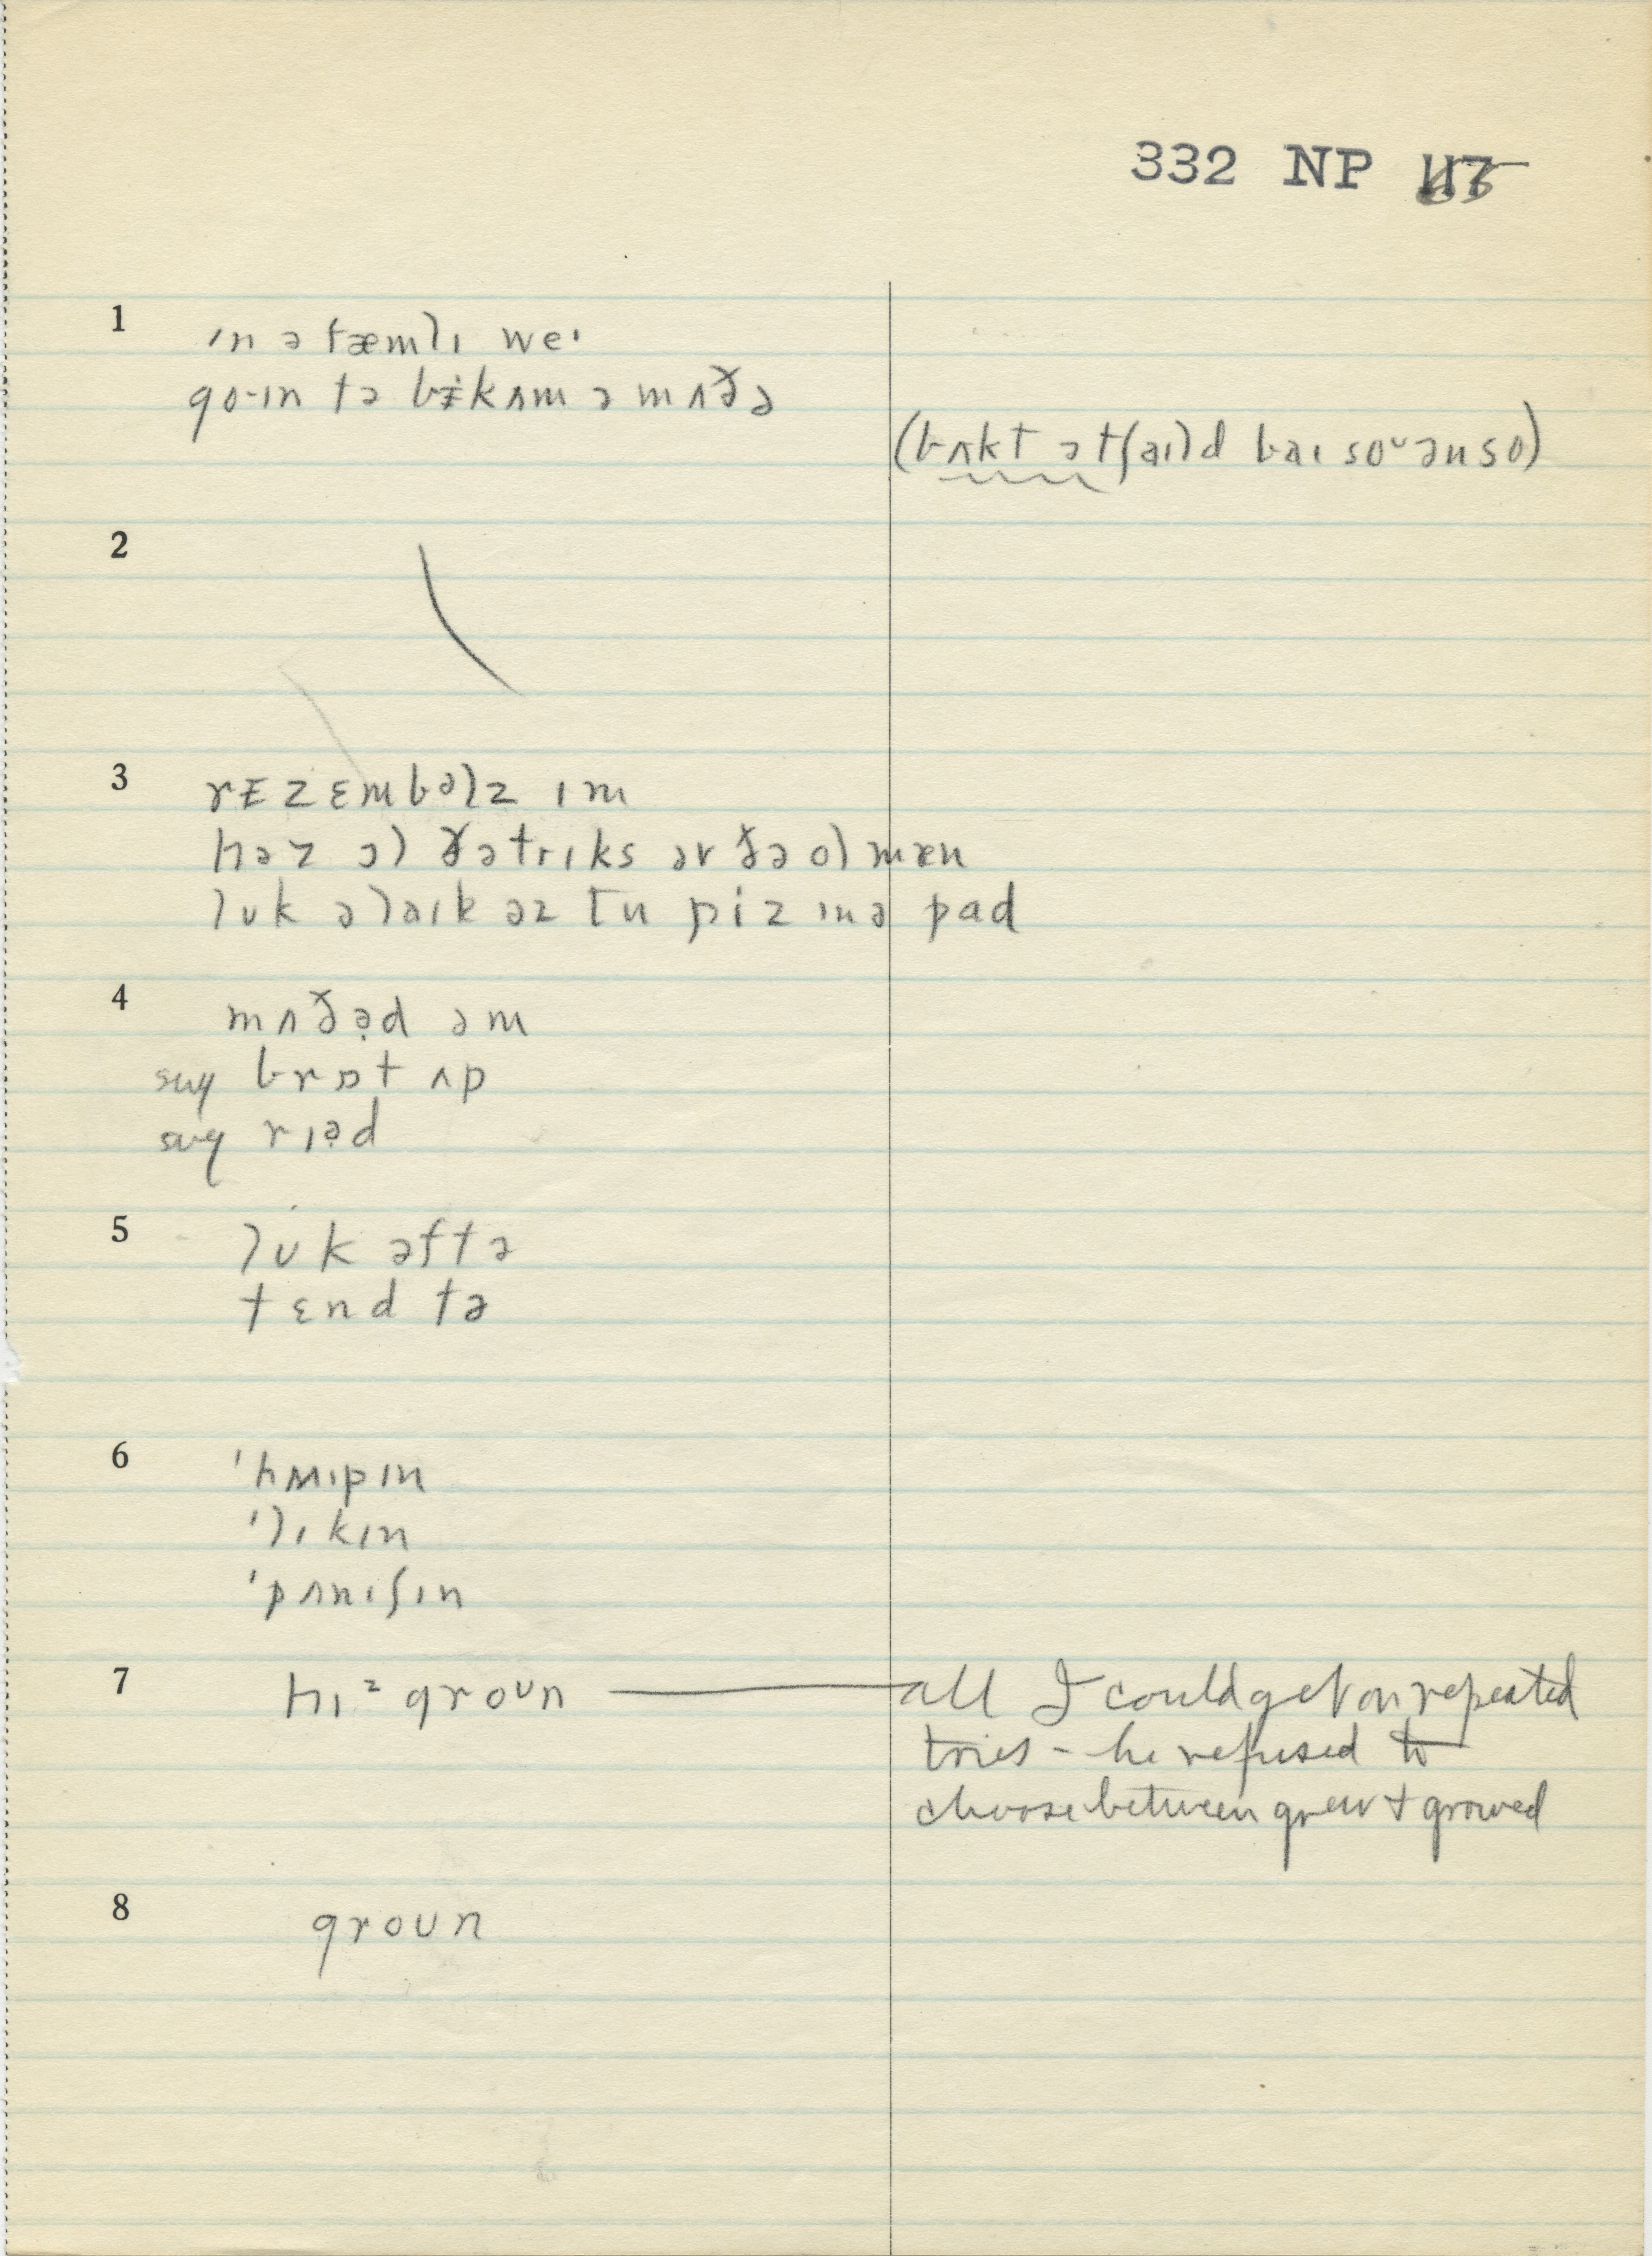 332 NP
1 ɪn ə fæmlɪ weɪ
go·ɪn tə bɨkʌm ə mʌðə
(bʌkt ə tʃaɪld baɪ soᵘ ən so)
2
3 rɨzɛmbəlz ɪm
həz ɔl ðə trɪks əv ðə ol mæn
lʊk əlaɪk əz tu piz ɪn ə pad
4 mʌðə̣d əm
sug brɒt ʌp
sug rɪə̣d
5 lʊk əftə
tɛnd tə
6 'hʍɪpɪn
'lɪkɪn
'pʌnɪʃɪn
7 hɪᶻ groʊn — all I could get on repeated
tries - he refused to
choose between grew + growed
8 groʊn